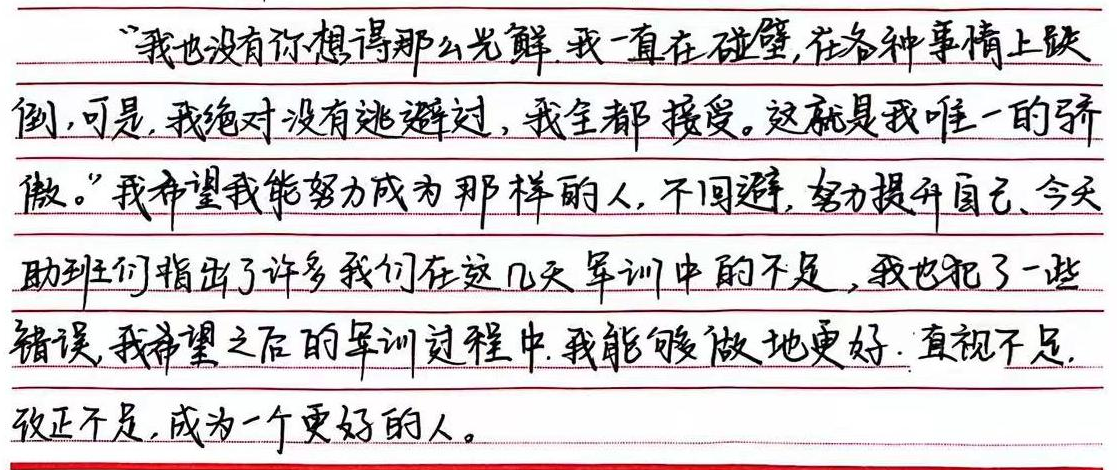 “我也没有你想得那么光鲜.我一直在碰壁,在各种事情上跌
倒,可是,我绝对没有逃避过,我全都接受。这就是我唯一的骄
傲。”我希望我能努力成为那样的人,不回避,努力提升自己、今天
助班们指出了许多我们在这几天军训中的不足,我也犯了一些
错误,我希望之后的军训过程中.我能够做地更好.直视不足.
改正不足,成为一个更好的人。